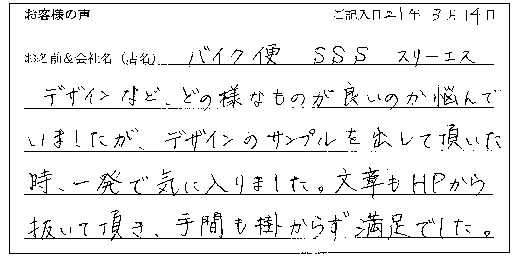 お客様の声 ご記入日21年 3月14日
お名前&会社名（店名） バイク便 SSS スリーエス
デザインなど、どの様なものが良いのか悩んで
いましたが、デザインのサンプルを出して頂いた
時、一発で気に入りました。文章もHPから
抜いて頂き、手間も掛からず満足でした。